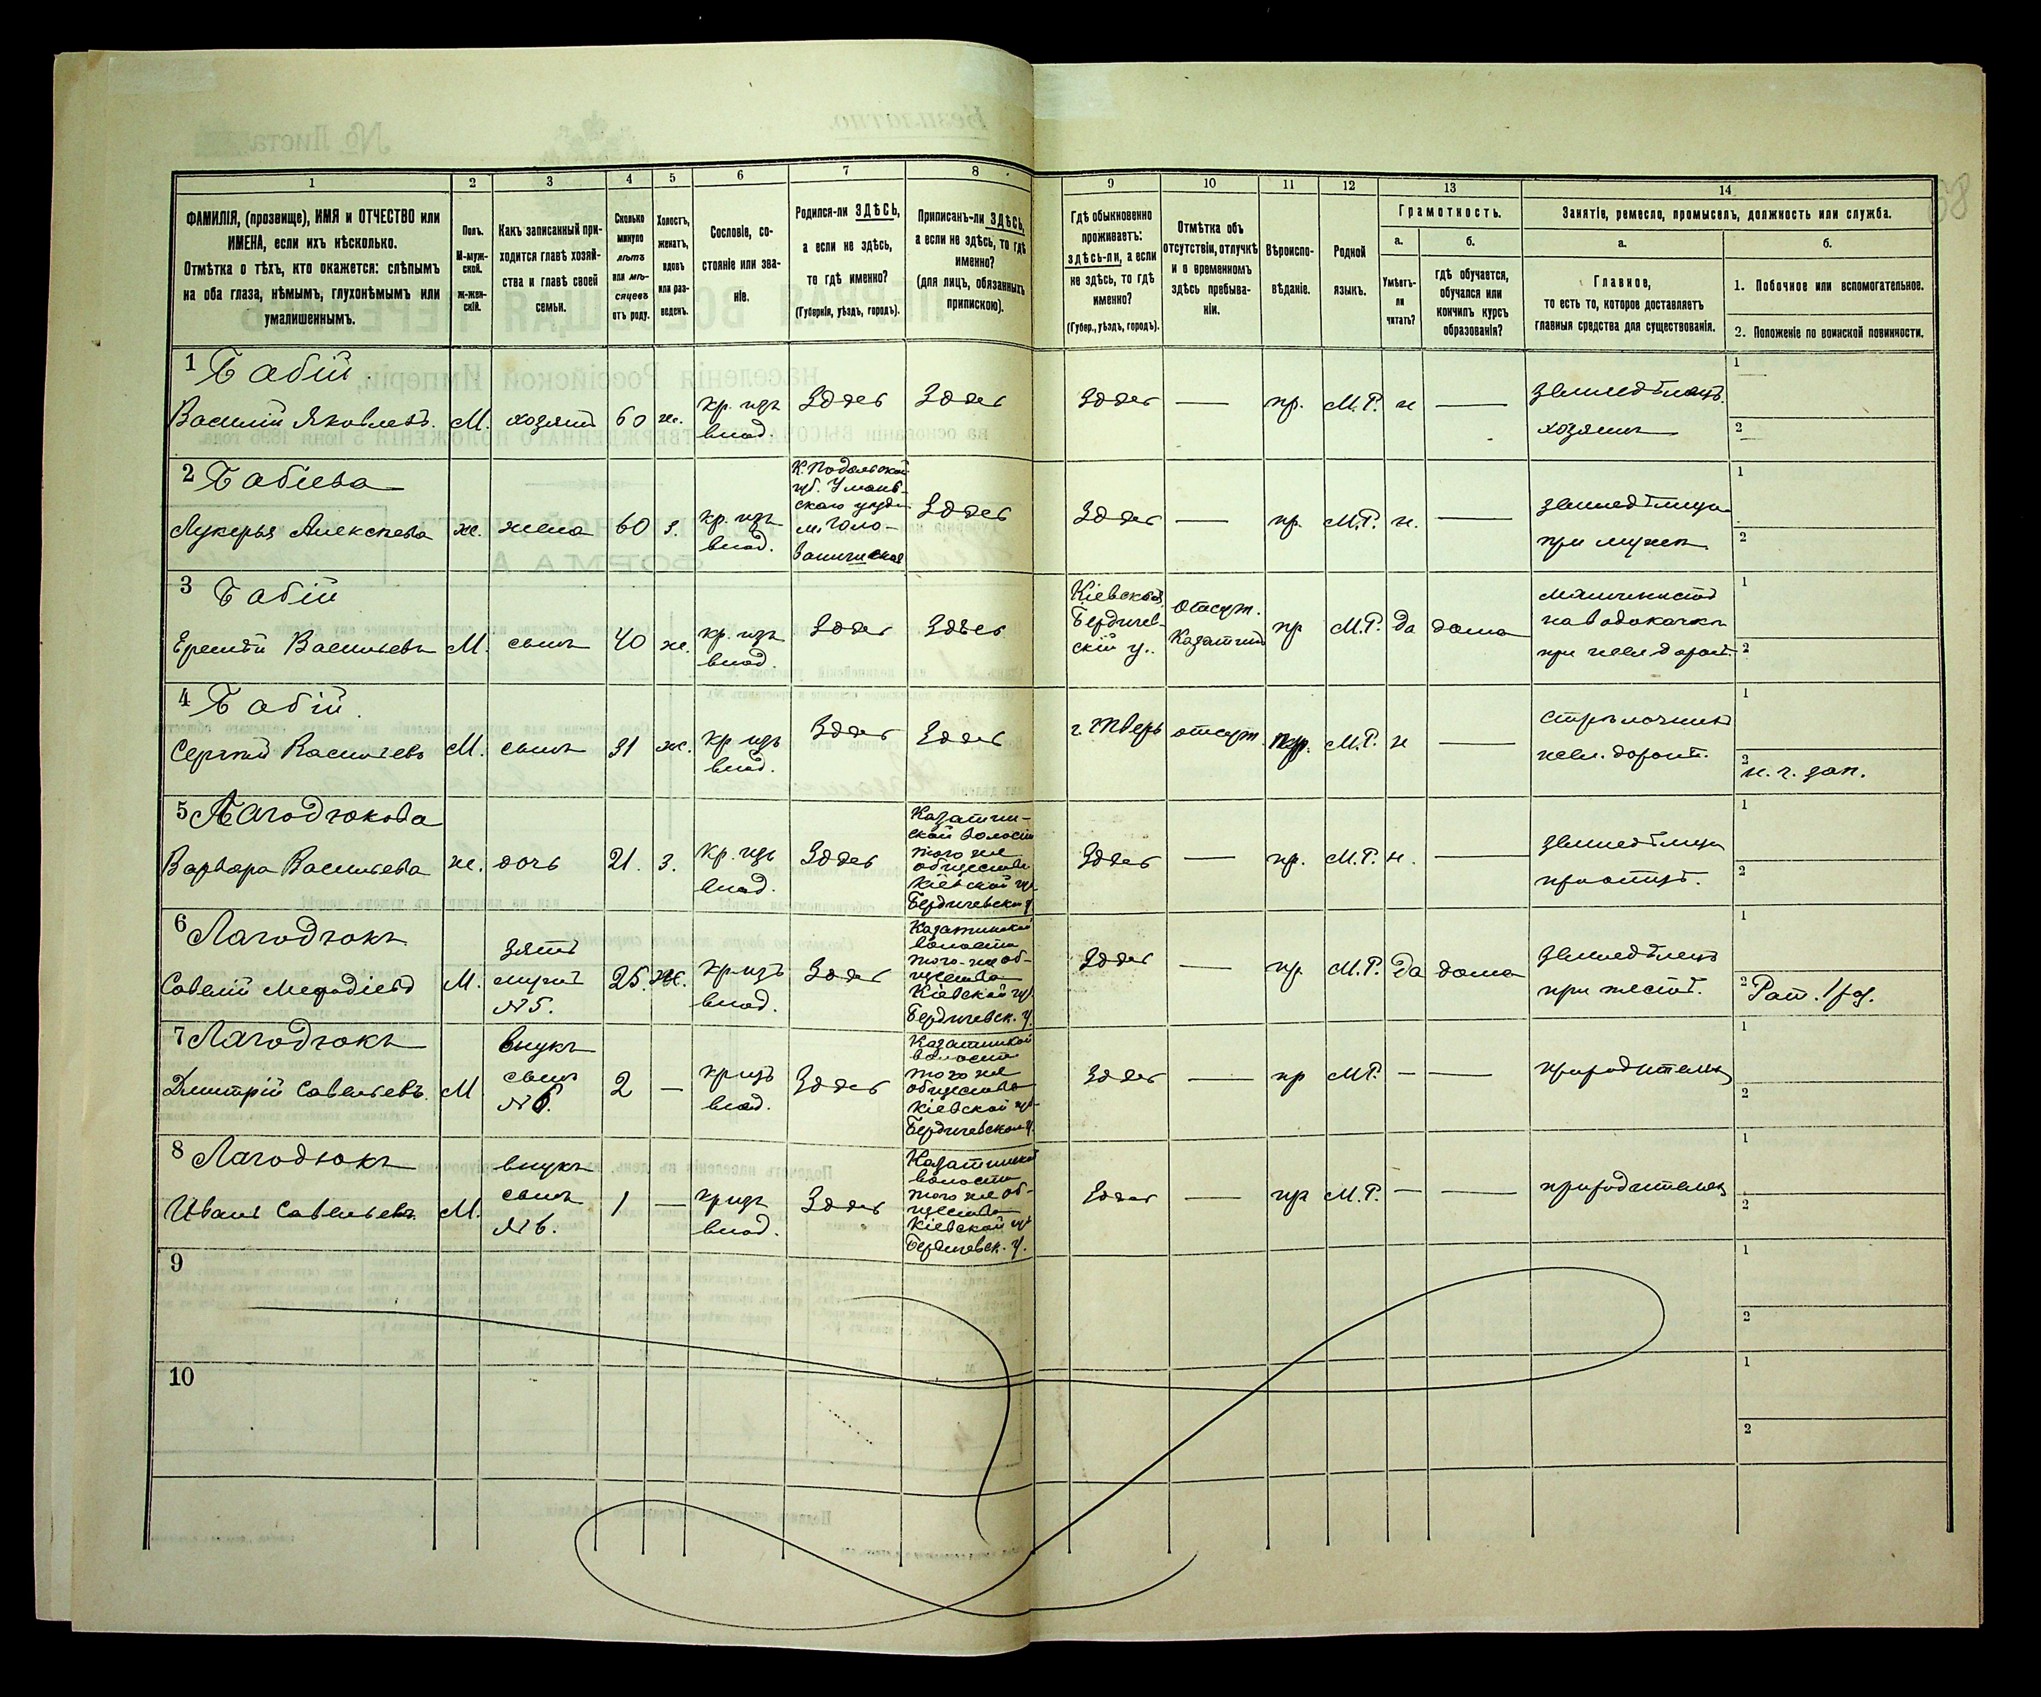 68
1 2 3 4 5 6 7 8 9 10 11 12 13 14
ФАМИЛІЯ, (прозвище), ИМЯ и ОТЧЕСТВО или
ИМЕНА, если ихъ нѣсколько.
Отмѣтка о тѣхъ, кто окажется: слѣпымъ
на оба глаза, нѣмымъ, глухонѣмымъ или
умалишеннымъ.
Полъ.
М-муж-
ской.
Ж-жен-
скій.
Какъ записанный при-
ходится главѣ хозяй-
ства и главѣ своей
семьи.
Сколько
минуло
лѣтъ
или мѣ-
сяцевъ
отъ роду.
Холостъ,
женатъ,
вдовъ
или раз-
веденъ.
Сословіе, со-
стояніе или зва-
ніе.
Родился-ли ЗДѢСЬ,
а если не здѣсь,
то гдѣ именно?
(Губернія, уѣздъ, городъ).
Приписанъ-ли ЗДѢСЬ,
а если не здѣсь, то гдѣ
именно?
(для лицъ, обязанныхъ
припискою).
Гдѣ обыкновенно
проживаетъ:
здѣсь-ли, а если
не здѣсь, то гдѣ
именно?
(Губер., уѣздъ, городъ).
Отмѣтка объ
отсутствіи, отлучкѣ
и о временномъ
здѣсь пребыва-
ніи.
Вѣроиспо-
вѣданіе.
Родной
языкъ.
Грамотность.
а.
Умѣетъ-
ли
читать?
б.
гдѣ обучается,
обучался или
кончилъ курсъ
образованія?
Занятіе, ремесло, промыселъ, должность или служба.
а.
Главное,
то есть то, которое доставляетъ
главныя средства для существованія.
б.
1. Побочное или вспомогательное.
2. Положеніе по воинской повинности.
1 Бабій
Василій Яковлевъ.
М.
хозяинъ
60
ж.
кр. изъ
влад.
Здѣсь
Здѣсь
Здѣсь
—
пр.
М.Р.
н
—
земледѣлецъ
хозяинъ
1
2
2 Бабіева
Лукерья Алексѣева
ж.
жена
60
з.
кр. изъ
влад.
К. Подольской
губ. Уманьского уѣзда
м. Голо-
Здѣсь
Здѣсь
—
пр.
М.Р.
н.
—
земледѣлица
при мужѣ
1
2
3 Бабій
Еремѣй Васильевъ
М.
сынъ
40
ж.
кр. изъ
влад.
Здѣсь
Здѣсь
Кіевской,
Бердичев-
скій у.
отсут.
Казатинъ
пр
М.Р.
да
дома
машинистъ
на водокачкѣ
при желѣ. дорогѣ.
1
2
4 Бабій.
Сергѣй Васильевъ
М.
сынъ
31
ж.
кр изъ
влад.
Здѣсь
Здѣсь
г. Тверь
отсут.
пр.
М.Р.
н
—
стрѣлочникъ
жел. дорог.
1
2 н. ч. зап.
5 Лагодюкова
Варвара Васильева
ж.
дочь
21.
з.
Кр. изъ
влад.
Здѣсь
Казатин-
ской волости
того же
общества
Кіевской губ
Бердичевск у
Здѣсь
—
пр.
М.Р.
н.
—
земледѣлица
при отцѣ.
1
2
6 Лагодюкъ
Савелій Мефодіевъ
М.
зять
мужъ
№5.
25.
ж.
кр изъ
влад.
Здѣсь
Казатинской
волости
того-же об-
щества
Кіевской губ
Бердичевск. у.
Здѣсь
—
пр
М.Р.
Да
дома
земледѣлецъ
при тестѣ.
1
2
7 Лагодюкъ
Дмитрій Савельевъ.
М
внукъ
сынъ
№6.
2
—
кр изъ
влад.
Здѣсь
Казатинской
волости
того же
общества
Кіевской губ
Бердичевской у.
Здѣсь
—
пр
М.Р.
—
—
при родителяхъ
1
2
8 Лагодюкъ
Иванъ Савельевъ.
М.
внукъ
сынъ
№6.
1
—
кр изъ
влад.
Здѣсь
Казатинской
волости
того же об-
щества
Кіевской губ
Бердичевск. у.
Здѣсь
—
пр
М.Р.
—
—
при родителяхъ
1
2
9
1
2
10
1
2